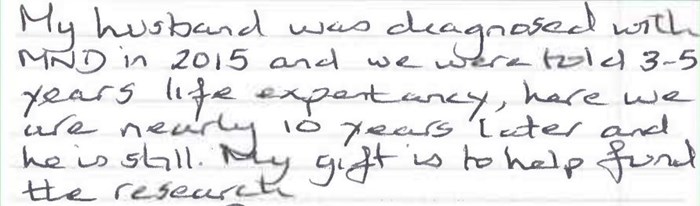 My husband was diagnosed with
MND in 2015 and we were told 3-5
years life expectancy, here we
are nearly 10 years later and
he is still. My gift is to help fund
the research